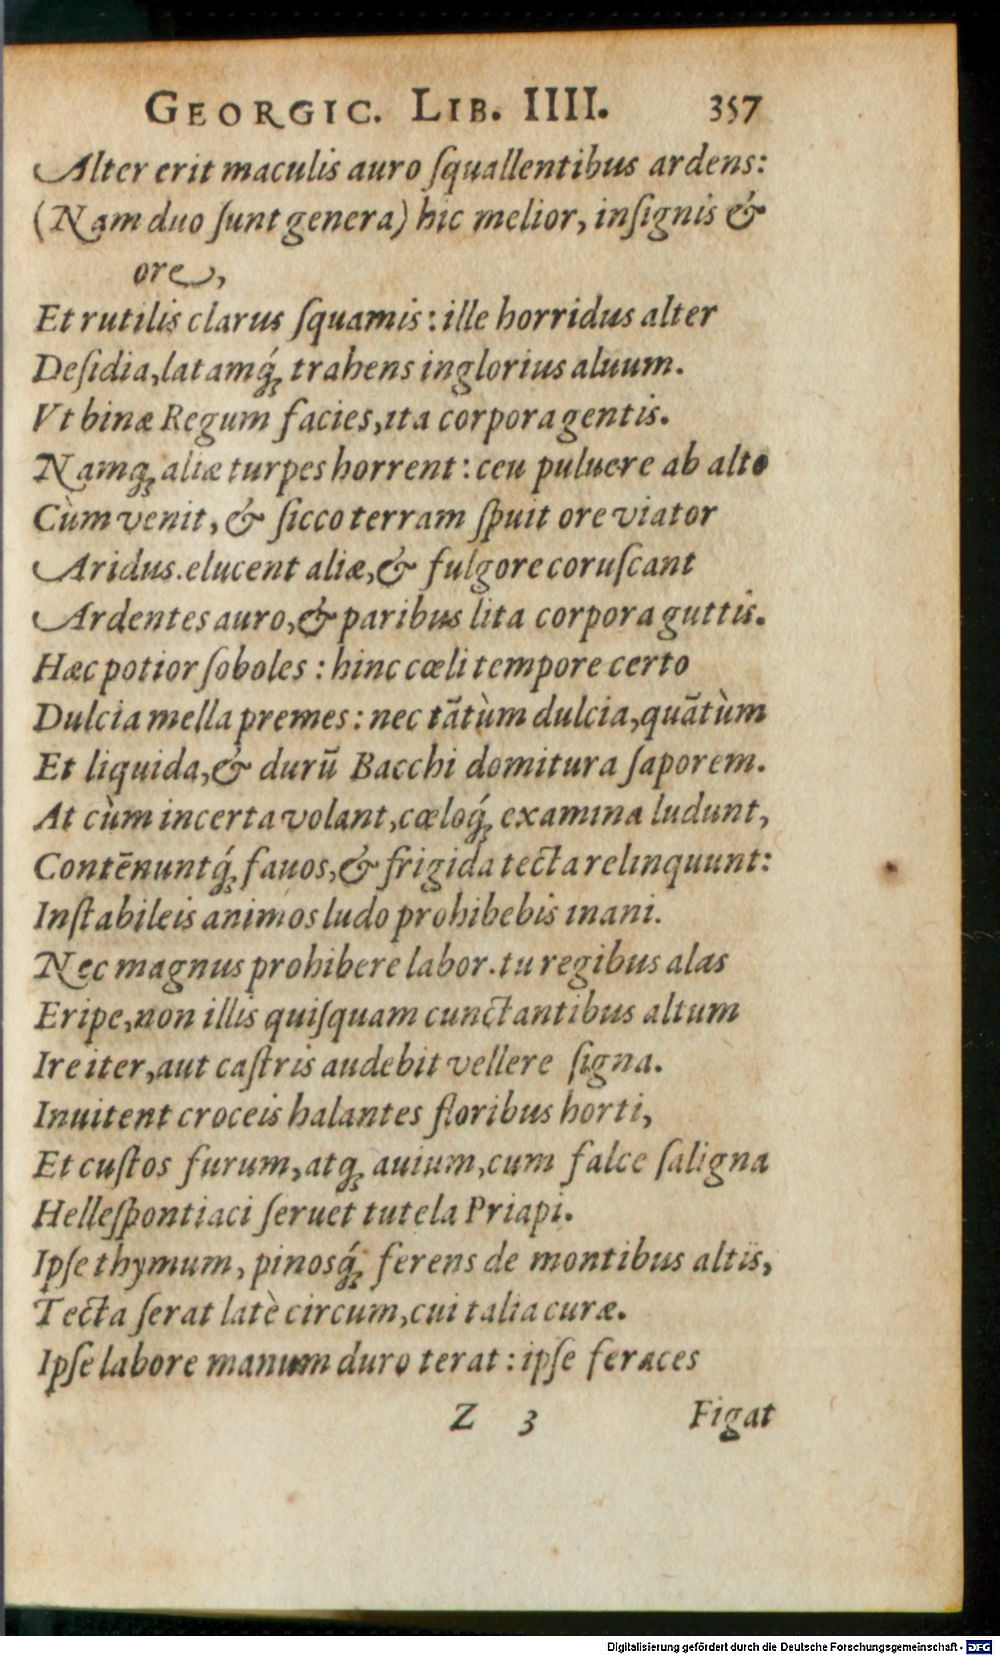 GEORGIC. LIB. IIII. 357
Alter erit maculis auro ſquallentibus ardens:
(Nam duo ſunt genera) hic melior, inſignis &
ore,
Et rutilis clarus ſquamis: ille horridus alter
Deſidia, latamq́; trahens inglorius aluum.
Vt binæ Regum facies, ita corpora gentis.
Namq; aliæ turpes horrent: ceu puluere ab alto
Cùm venit, & ſicco terram ſpuit ore viator
Aridus. elucent aliæ, & fulgore coruſcant
Ardentes auro, & paribus lita corpora guttis.
Hæc potior ſoboles: hinc cœli tempore certo
Dulcia mella premes: nec tãtùm dulcia, quãtùm
Et liquida, & durũ Bacchi domitura ſaporem.
At cùm incerta volant, cœloq́; examina ludunt,
Contẽnuntq́; fauos, & frigida tecta relinquunt:
Inſtabileis animos ludo prohibebis inani.
Nec magnus prohibere labor. tu regibus alas
Eripe, non illis quiſquam cunctantibus altum
Ire iter, aut caſtris audebit vellere ſigna.
Inuitent croceis halantes floribus horti,
Et cuſtos furum, atq; auium, cum falce ſaligna
Helleſpontiaci ſeruet tutela Priapi.
Ipſe thymum, pinosq́; ferens de montibus altis,
Tecta ſerat latè circum, cui talia curæ.
Ipſe labore manum duro terat: ipſe feraces
Z 3 Figat
Digitalisierung gefördert durch die Deutsche Forschungsgemeinschaft - DFG